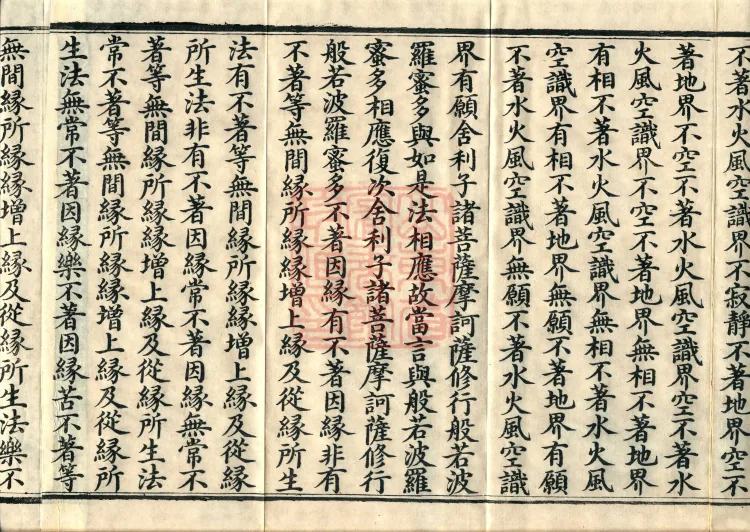 不著水火風空識界不寂靜不著地界空不
著地界不空不著水火風空識界空不著水
火風空識界不空不著地界無相不著地界
有相不著水火風空識界無相不著水火風
空識界有相不著地界無願不著地界有願
不著水火風空識界無願不著水火風空識
界有願舍利子諸菩薩摩訶薩修行般若波
羅蜜多與如是法相應故當言與般若波羅
蜜多相應復次舍利子諸菩薩摩訶薩修行
般若波羅蜜多不著因緣有不著因緣非有
不著等無間緣所緣緣增上緣及從緣所生
法有不著等無間緣所緣緣增上緣及從緣
所生法非有不著因緣常不著因緣無常不
著等無間緣所緣緣增上緣及從緣所生法
常不著等無間緣所緣緣增上緣及從緣所
生法無常不著因緣樂不著因緣苦不著等
無間緣所緣緣增上緣及從緣所生法樂不